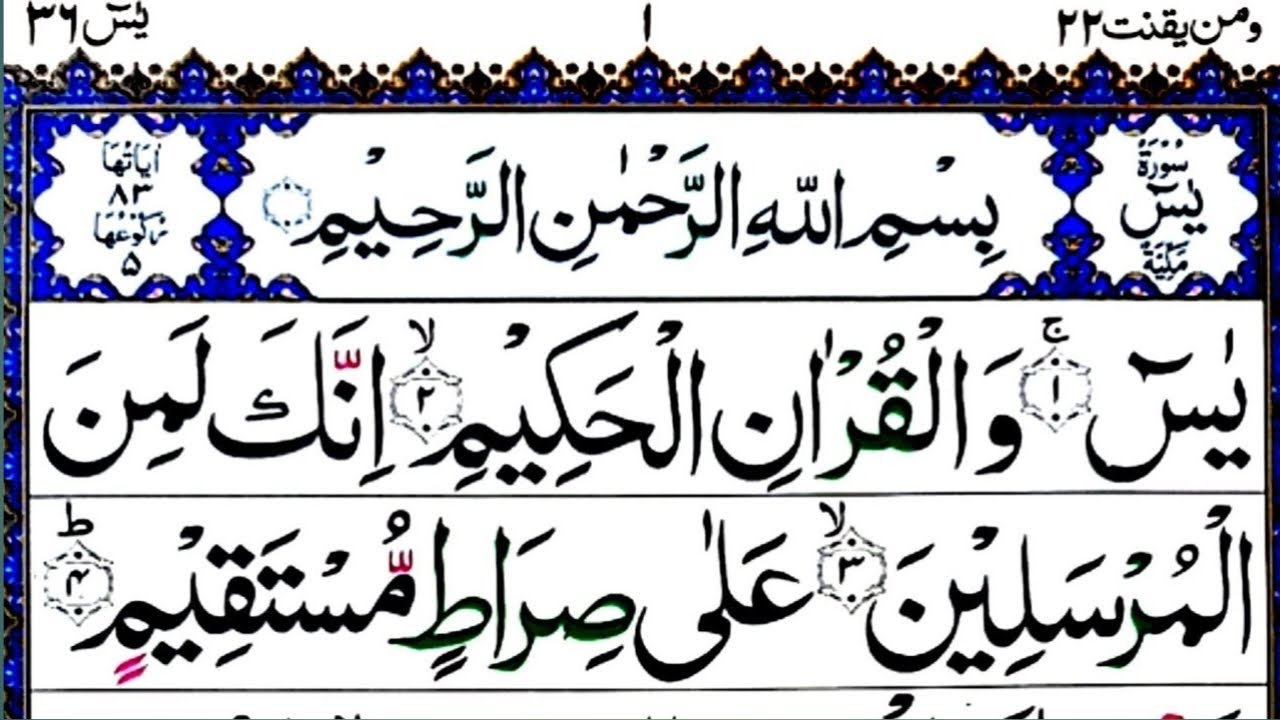 ومن يقنت ٢٢
١
يٰسٓ ٣٦
سُوْرَةُ
يٰسٓ
مَكِّيَّةٌ
بِسْمِ اللّٰهِ الرَّحْمٰنِ الرَّحِيْمِ
اٰيَاتُهَا
٨٣
رُكُوْعُهَا
٥
يٰسٓ ۚ ١ وَالْقُرْاٰنِ الْحَكِيْمِ ۙ ٢ اِنَّكَ لَمِنَ
الْمُرْسَلِيْنَ ۙ ٣ عَلٰى صِرَاطٍ مُّسْتَقِيْمٍ ؕ ۴